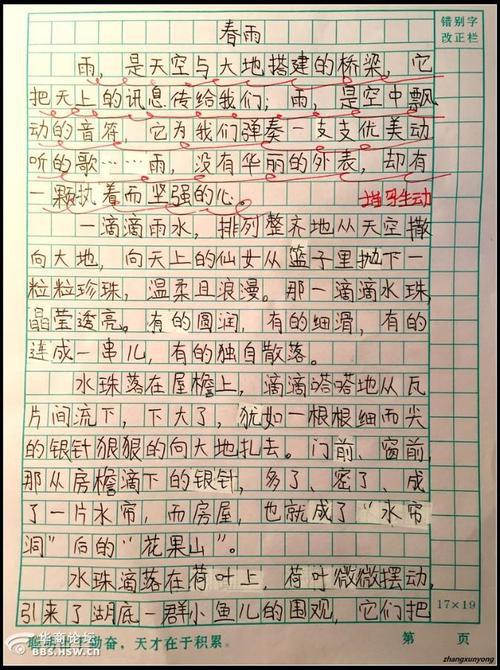 错别字
改正栏
春雨
雨，是天空与大地搭建的桥梁，它
把天上的讯息传给我们；雨，是空中飘
动的音符，它为我们弹奏一支支优美动
听的歌……雨，没有华丽的外表，却有
一颗执着而坚强的心。
描写生动
一滴滴雨水，排列整齐地从天空撒
向大地，向天上的仙女从篮子里抛下一
粒粒珍珠，温柔且浪漫。那一滴滴水珠，
晶莹透亮。有的圆润，有的细滑，有的
连成一串儿，有的独自散落。
水珠落在屋檐上，滴滴嗒嗒地从瓦
片间流下，下大了，犹如一根根细而尖
的银针狠狠的向大地扎去。门前、窗前，
那从房檐滴下的银针，多了、密了、成
了一片水帘，而房屋，也就成了“水帘
洞”后的“花果山”。
水珠滴落在荷叶上，荷叶微微摆动，
引来了湖底一群小鱼儿的围观，它们把
17×19
华商论坛
BBS.HSW.CN
勤奋，天才在于积累。
第 页
zhangxunyong